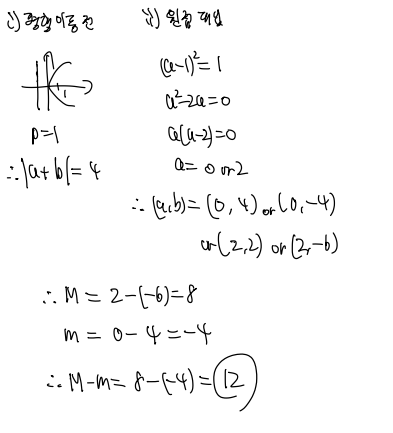 i) 평행이동 전
ii) 원점 대입
1
P=1
∴|a+b|=4
(a-1)²=1
a²-2a=0
a(a-2)=0
a= 0 or 2
∴ (a,b)= (0, 4) or (0,-4)
or (2,2) or (2,-6)
∴ M = 2-(-6)=8
m = 0-4 =-4
∴ M-m= 8-(-4)= 12